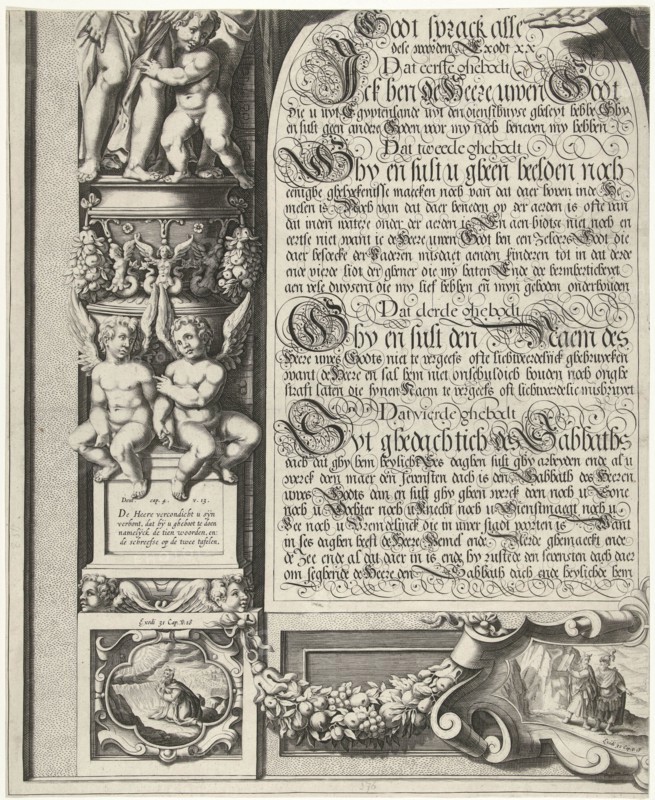 Godt sprack alle
dese woorden Exodi xx
Dat eerste ghebodt
Ick ben de Heere uwen Godt
die u uyt Egyptenlande uyt den diensthuyse gheleyt hebbe Ghy
en sult geen andre Goden voor my noch beneven my hebben
Dat tweede ghebodt
Ghy en sult u gheen beelden noch
eenighe ghelyckenisse maecken noch van dat daer boven inde He
melen is Noch van dat daer beneden op der aerden is ofte van
dat inden watere onder der aerden is En aen bidtse niet noch en
eertse niet want ic de Heere uwen Godt ben een Godt die
daer besoecke der Vaderen misdaet aenden kinderen tot in dat derde
ende vierde lidt der ghener die my haten Ende doe bermherticheyt
aen vele duysent die my lief hebben en myn geboden onderhouden
Dat derde ghebodt
Ghy en sult den Naem des
Heere uwes Godts niet te vergeefs ofte lichtveerdelyck ghebruycken
want de Heere en sal hem niet onschuldich houden noch onghe
straft laten die synen Naem te vergeefs oft lichtveerdelic misbruyct
Dat vierde ghebodt
Syt ghedachtich des Sabbaths
dach dat ghy hem heylicht Ses daghen sult ghy arbeyden ende al u
werck doen maer den sevensten dach is den Sabbath des Heeren
uwes Godts dan en sult ghy gheen werck doen noch u Sone
noch u Dochter noch u Knecht noch u Dienstmaeght noch u
Vee noch u Vremdelinck die in uwer stadt poorten is Want
in ses daghen heeft de Heere Hemel ende Aerde ghemaeckt ende
de Zee ende al dat daer in is ende hy rustede den sevensten dach daer
om seghende de Heere den Sabbath dach ende heylichde hem
Deut. cap. 4. v. 13.
De Heere vercondicht u syn
verbont, dat hy u gheboot te doen
namelyck de tien woorden, en:
de schreefse op de twee tafelen.
Exodi 31 Cap. V. 18
Exodi 32 Cap. V.